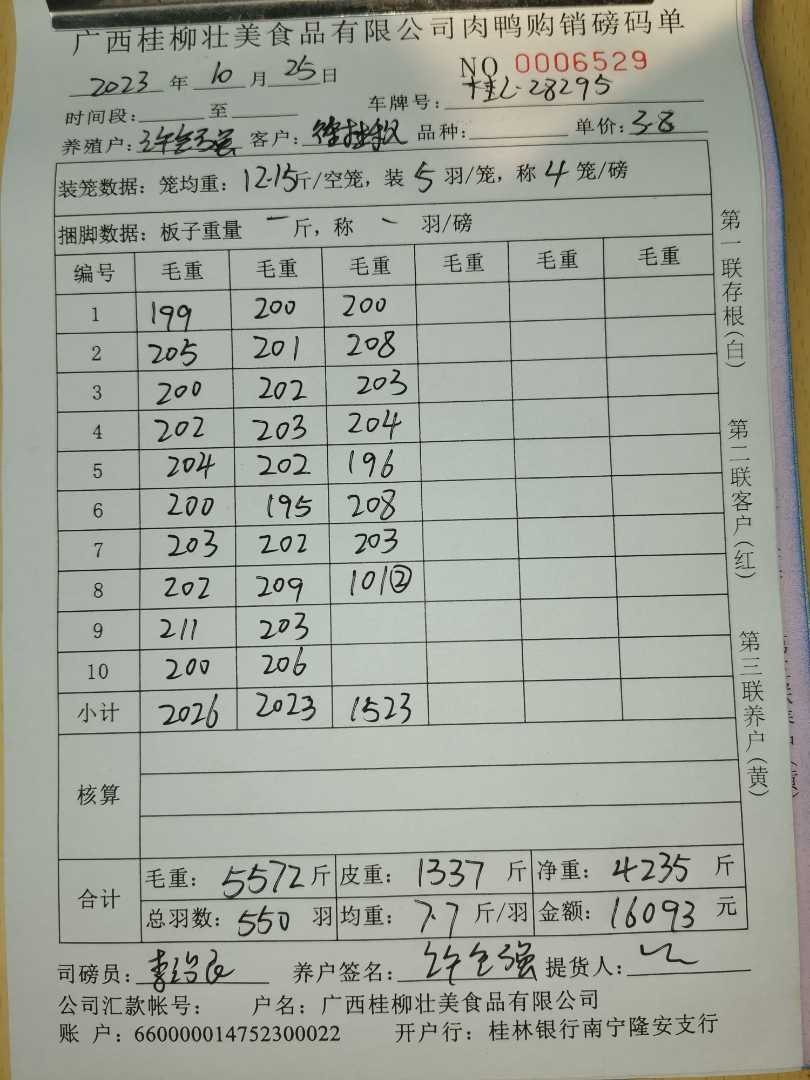 广西桂柳壮美食品有限公司肉鸭购销磅码单
2023年10月25日 NO 0006529
时间段: 至 车牌号: 桂L·28295
养殖户: 许全强 客户: 品种: 单价: 3.8
装笼数据: 笼均重: 12.15斤/空笼, 装5羽/笼, 称4笼/磅
捆脚数据: 板子重量 一 斤, 称 、 羽/磅
编号 毛重 毛重 毛重 毛重 毛重 毛重
1 199 200 200
2 205 201 208
3 200 202 203
4 202 203 204
5 204 202 196
6 200 195 208
7 203 202 203
8 202 209 101②
9 211 203
10 200 206
小计 2026 2023 1523
核算
合计 毛重: 5572斤 皮重: 1337斤 净重: 4235斤
总羽数: 550羽 均重: 7.7斤/羽 金额: 16093元
司磅员: 养户签名: 许全强 提货人:
公司汇款帐号: 户名: 广西桂柳壮美食品有限公司
账 户: 660000014752300022 开户行: 桂林银行南宁隆安支行
第一联存根(白)
第二联客户(红)
第三联养户(黄)